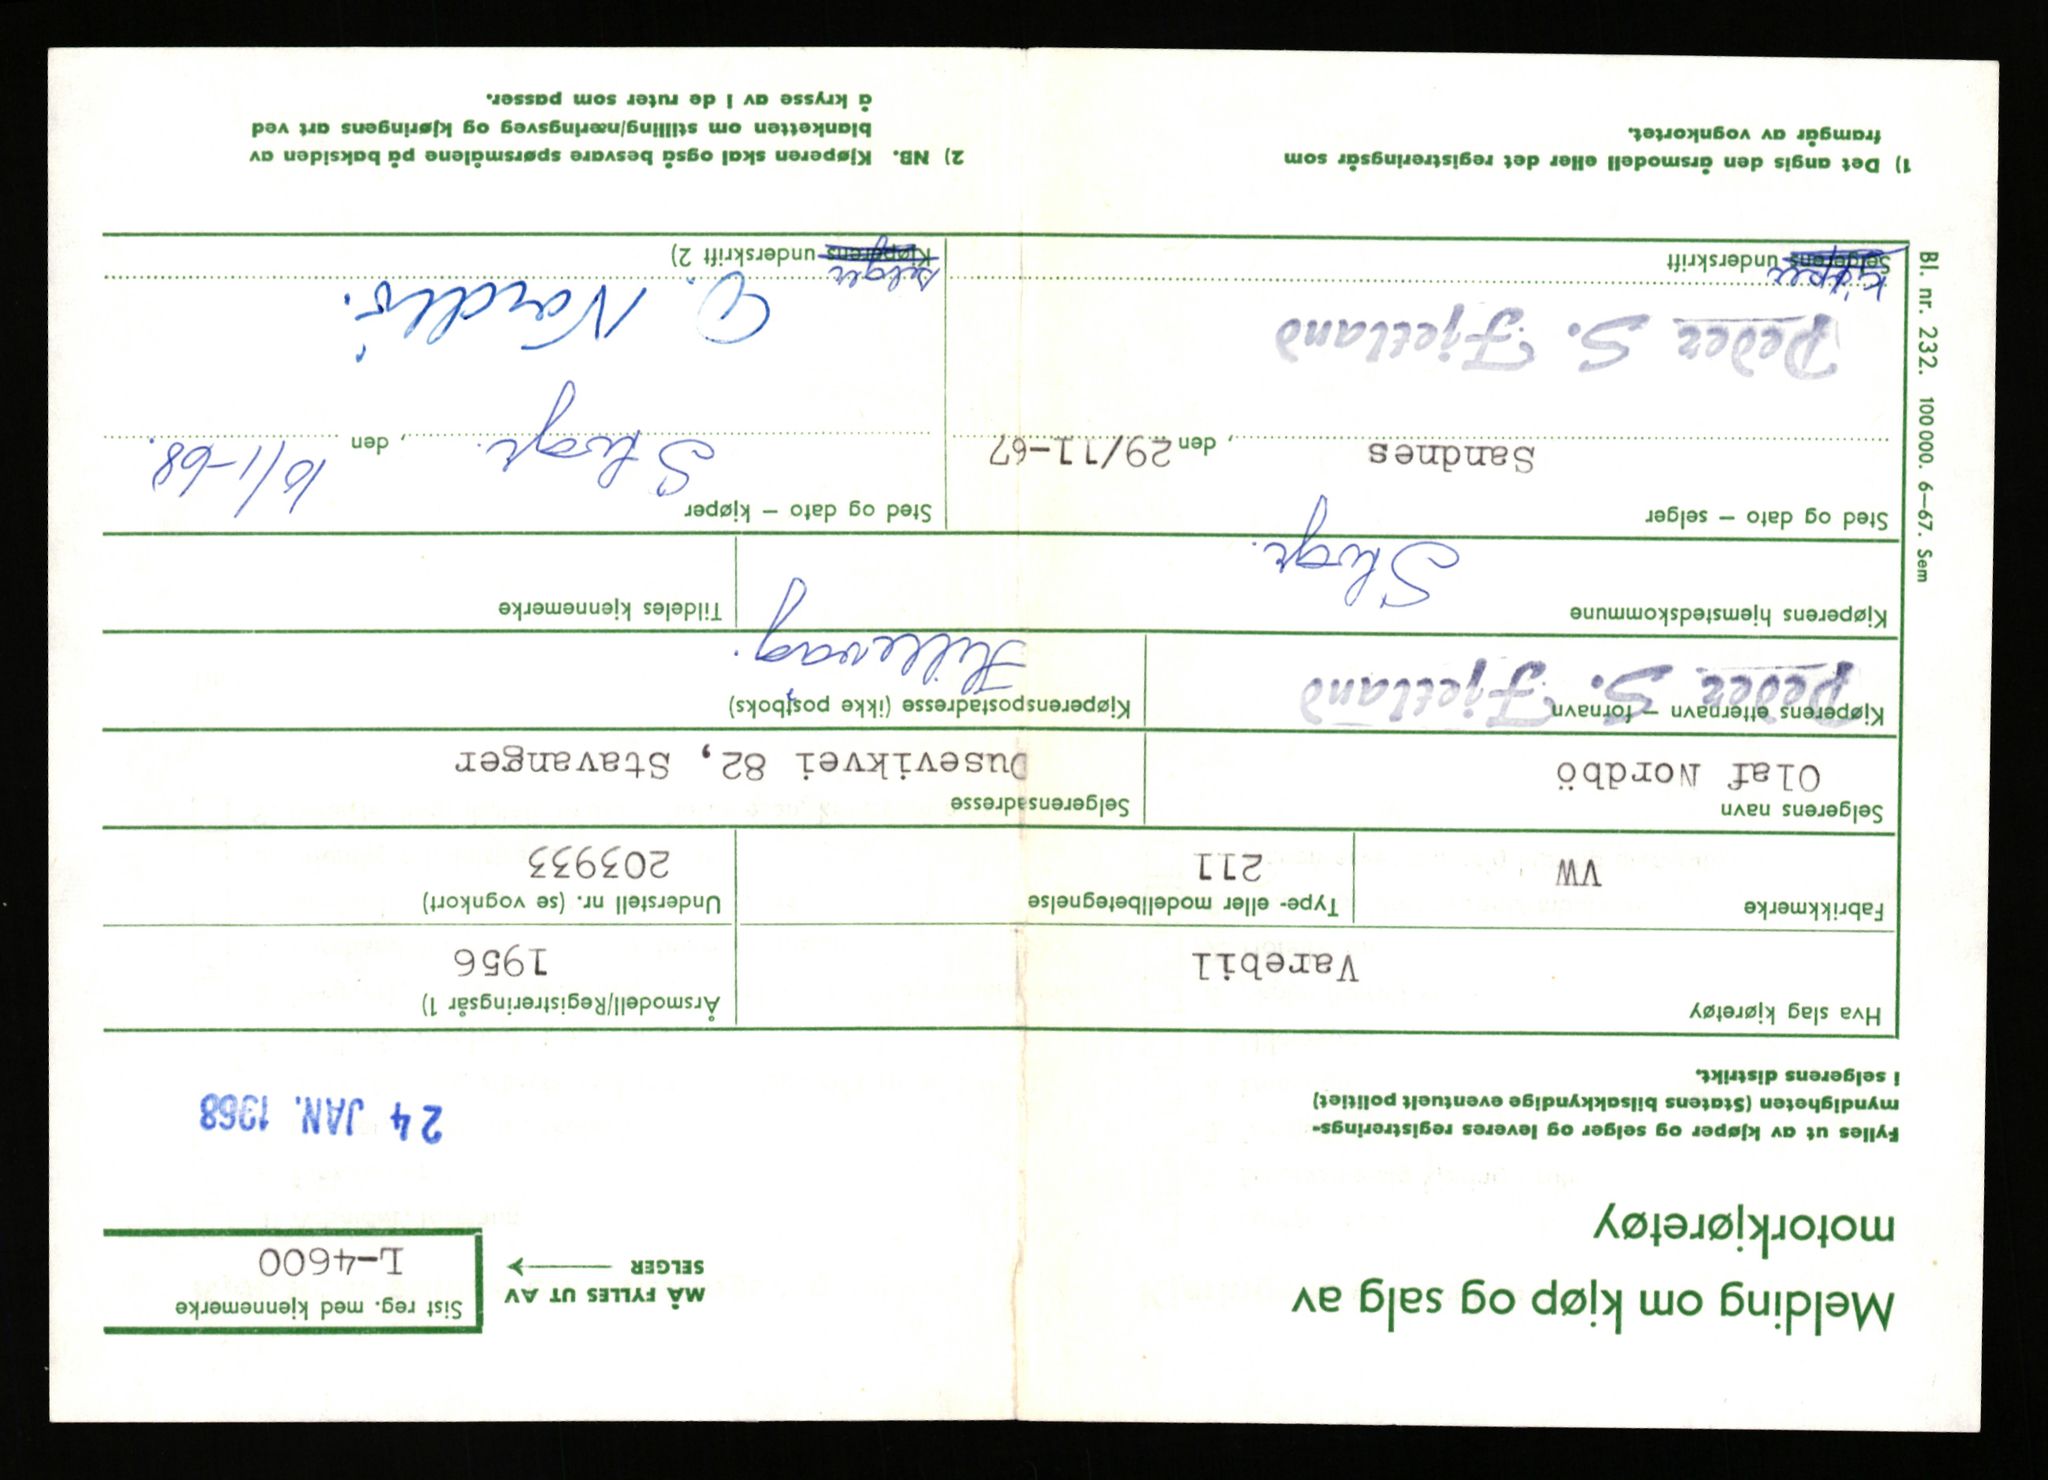 Melding om kjøp og salg av
motorkjøretøy
MÅ FYLLES UT AV
SELGER
Sist reg. med kjennemerke
L-4600
Fylles ut av kjøper og selger og leveres registrerings-
myndigheten (Statens bilsakkyndige eventuelt politiet)
i selgerens distrikt.
24 JAN. 1968
Hva slag kjøretøy
Varebil
Årsmodell/Registreringsår 1)
1956
Fabrikkmerke
VW
Type- eller modellbetegnelse
211
Understell nr. (se vognkort)
203933
Selgerens navn
Olaf Nordbö
Selgerensadresse
Dusevikvei 82, Stavanger
Kjøperens etternavn – fornavn
Peder S. Fjetland
Kjøperenspostadresse (ikke postboks)
Hillevåg.
Kjøperens hjemstedskommune
Stvgr.
Tildeles kjennemerke
Sted og dato – selger
Sandnes, den 29/11-67
Sted og dato – kjøper
Stvgr., den 10/1-68.
Peder S. Fjetland
O. Nordbö.
Kjøper
Selgerens underskrift
selger
Kjøperens underskrift 2)
1) Det angis den årsmodell eller det registreringsår som
framgår av vognkortet.
2) NB. Kjøperen skal også besvare spørsmålene på baksiden av
blanketten om stilling/næringsveg og kjøringens art ved
å krysse av i de ruter som passer.
Bl. nr. 232. 100 000. 6–67. Sem